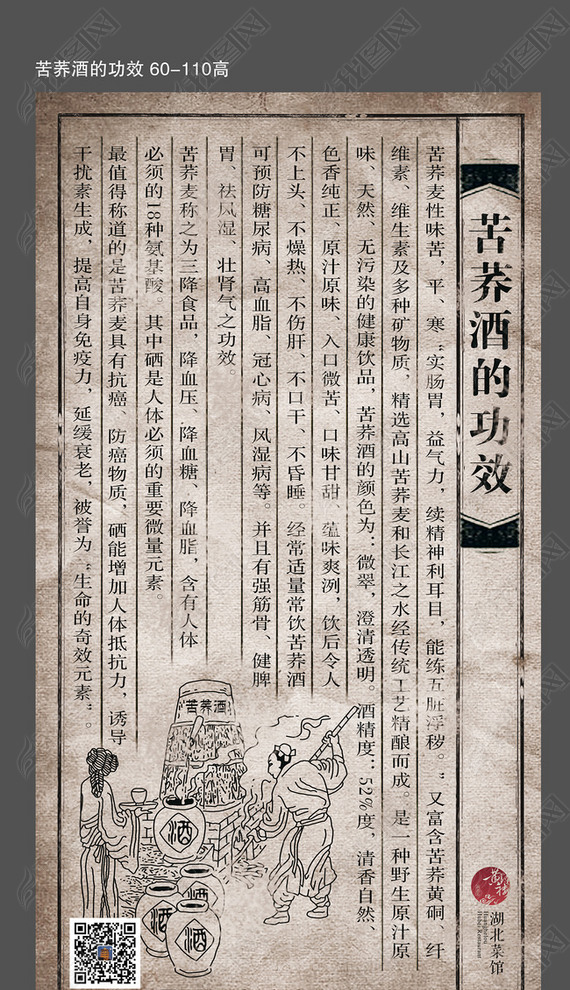 苦荞酒的功效 60-110高
苦荞酒的功效
苦荞麦性味苦，平、寒“实肠胃，益气力，续精神利耳目，能练五脏浮秽。”又富含苦荞黄硐、纤
维素、维生素及多种矿物质，精选高山苦荞麦和长江之水经传统工艺精酿而成。是一种野生原汁原
味、天然、无污染的健康饮品，苦荞酒的颜色为：微翠，澄清透明。酒精度：52%度，清香自然、
色香纯正、原汁原味、入口微苦、口味甘甜、蕴味爽洌，饮后令人
不上头、不燥热、不伤肝、不口干、不昏睡。经常适量常饮苦荞酒
可预防糖尿病、高血脂、冠心病、风湿病等。并且有强筋骨、健脾
胃、祛风湿、壮肾气之功效。
苦荞麦称之为三降食品、降血压、降血糖、降血脂，含有人体
必须的18种氨基酸，其中硒是人体必须的重要微量元素。
最值得称道的是苦荞麦具有抗癌、防癌物质，硒能增加人体抵抗力，诱导
干扰素生成，提高自身免疫力，延缓衰老，被誉为“生命的奇效元素”。
苦荞酒
酒
酒
酒
酒
湖北菜馆